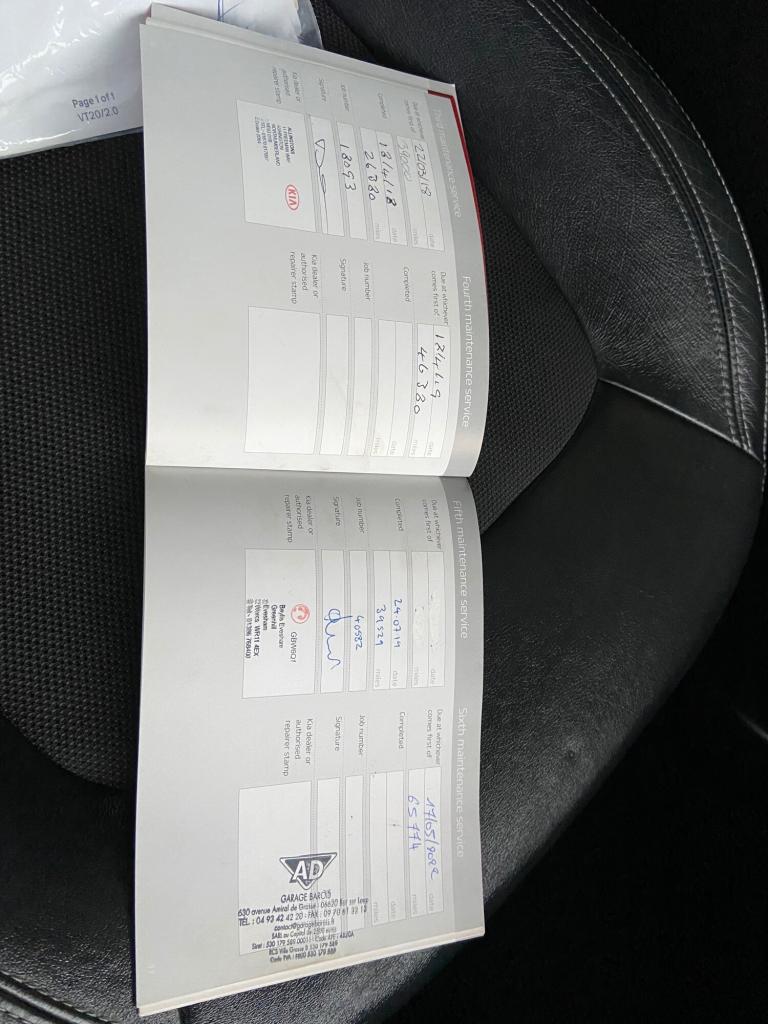 Page 1 of 1
VT20/2.0
Third maintenance service
Due at whichever
comes first of
22/03/18 date
miles
Completed
18/4/18 date
26380 miles
Job number
18093
Signature
Kia dealer or
authorised
repairer stamp
KIA
Fourth maintenance service
Due at whichever
comes first of
18/4/19 date
46380 miles
Completed
date
miles
Job number
Signature
Kia dealer or
authorised
repairer stamp
Fifth maintenance service
Due at whichever
comes first of
date
miles
Completed
24.07.19 date
39529 miles
Job number
40582
Signature
Kia dealer or
authorised
repairer stamp
Baylis Evesham
Greenhill
Evesham
Worcs WR11 4EX
Tel: 01386 768400
Sixth maintenance service
Due at whichever
comes first of
17/05/2022 date
65774 miles
Completed
date
miles
Job number
Signature
Kia dealer or
authorised
repairer stamp
AD
GARAGE BAROIS
630 avenue Amiral de Grasse - 06620 Bar sur Loup
TÉL : 04 93 42 42 20 - FAX : 09 70 61 32 12